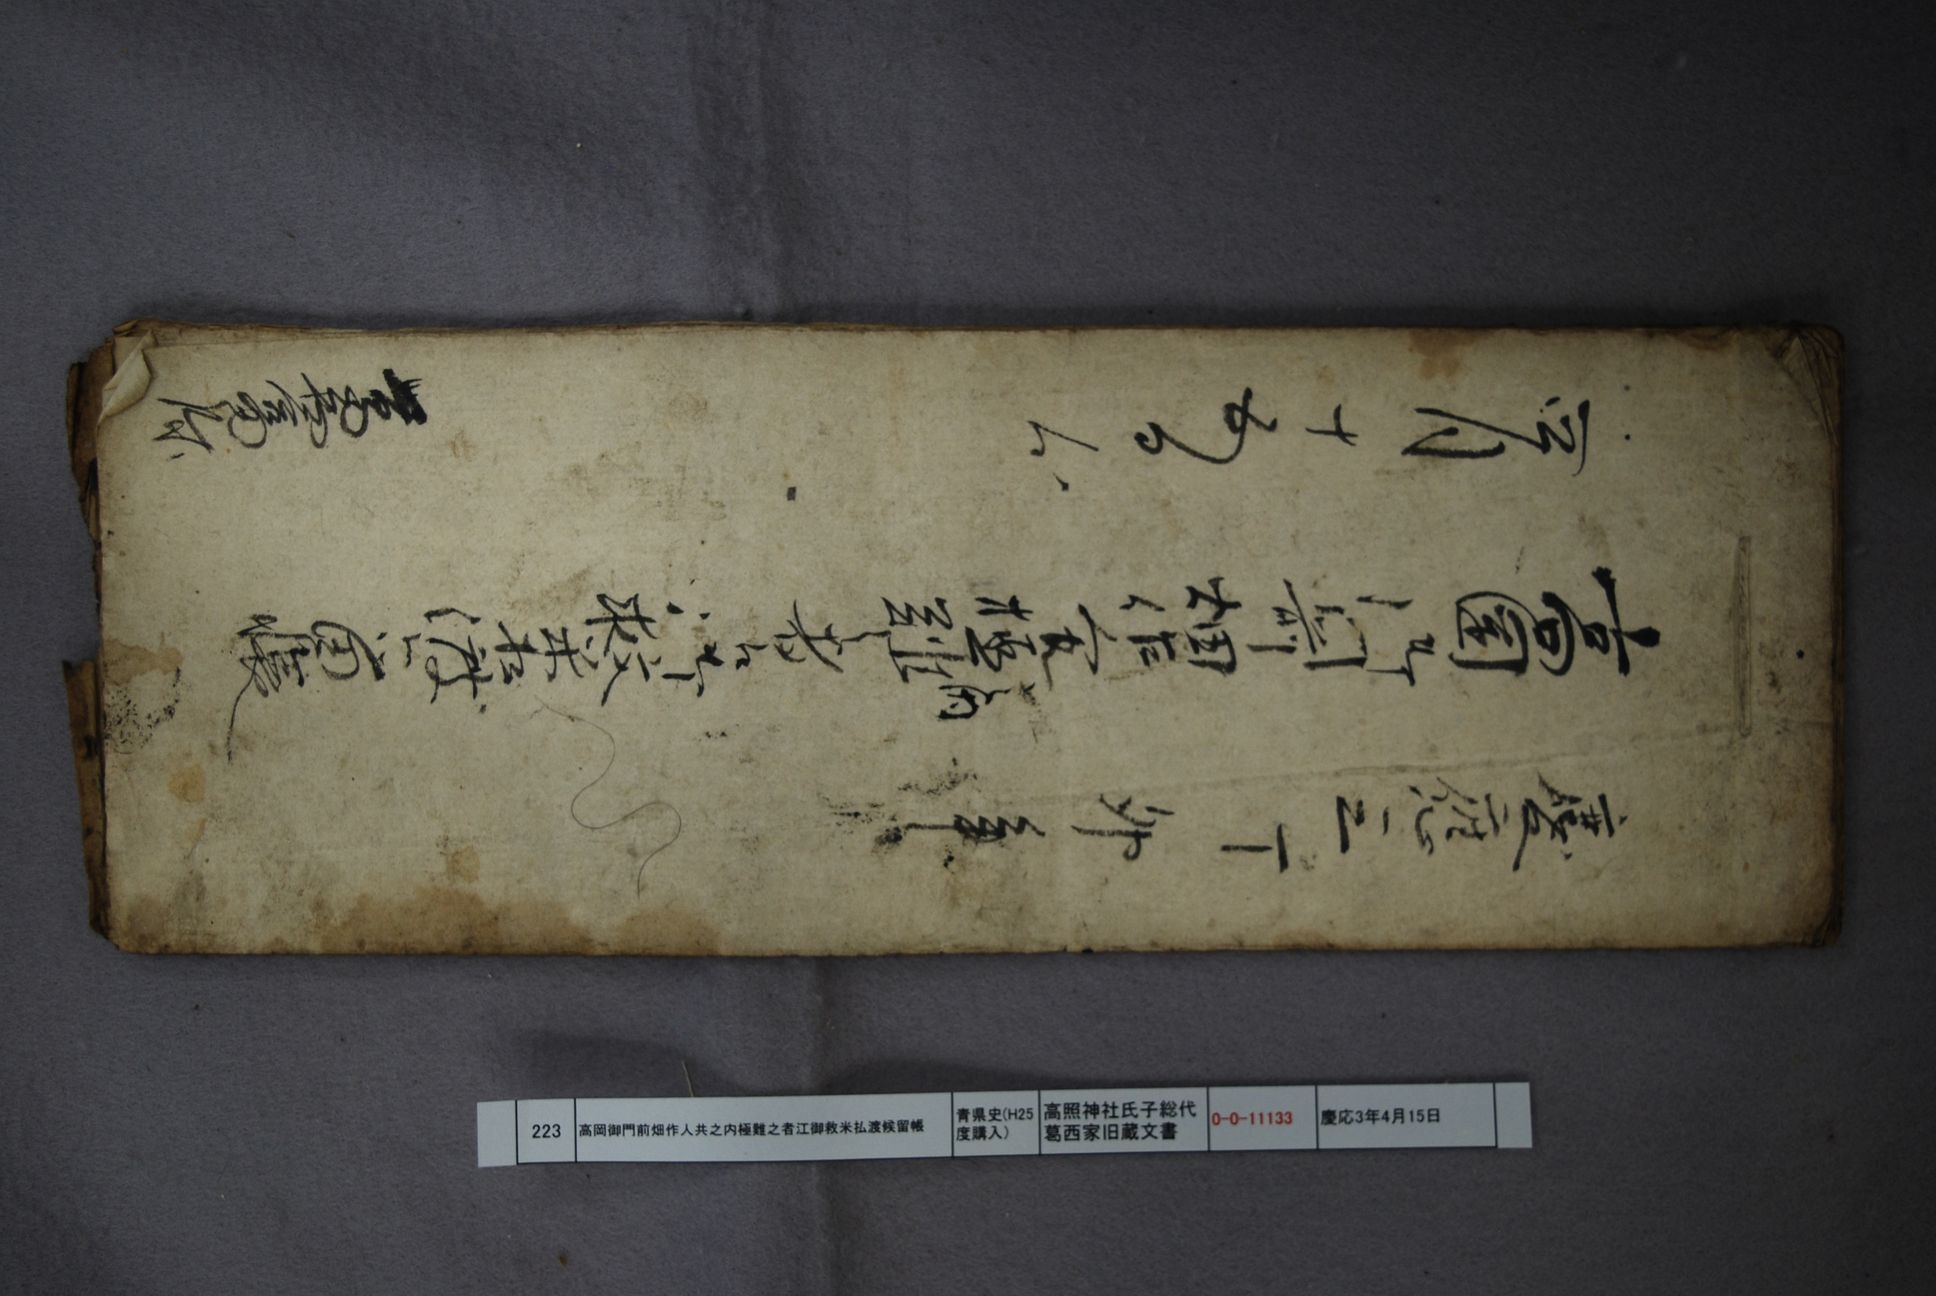 慶應三丁卯年
高岡御門前畑作人共之内極難之者江御救米払渡候留帳
四月十五日
223
高岡御門前畑作人共之内極難之者江御救米払渡候留帳
青県史(H25
度購入)
高照神社氏子総代
葛西家旧蔵文書
0-0-11133
慶応3年4月15日